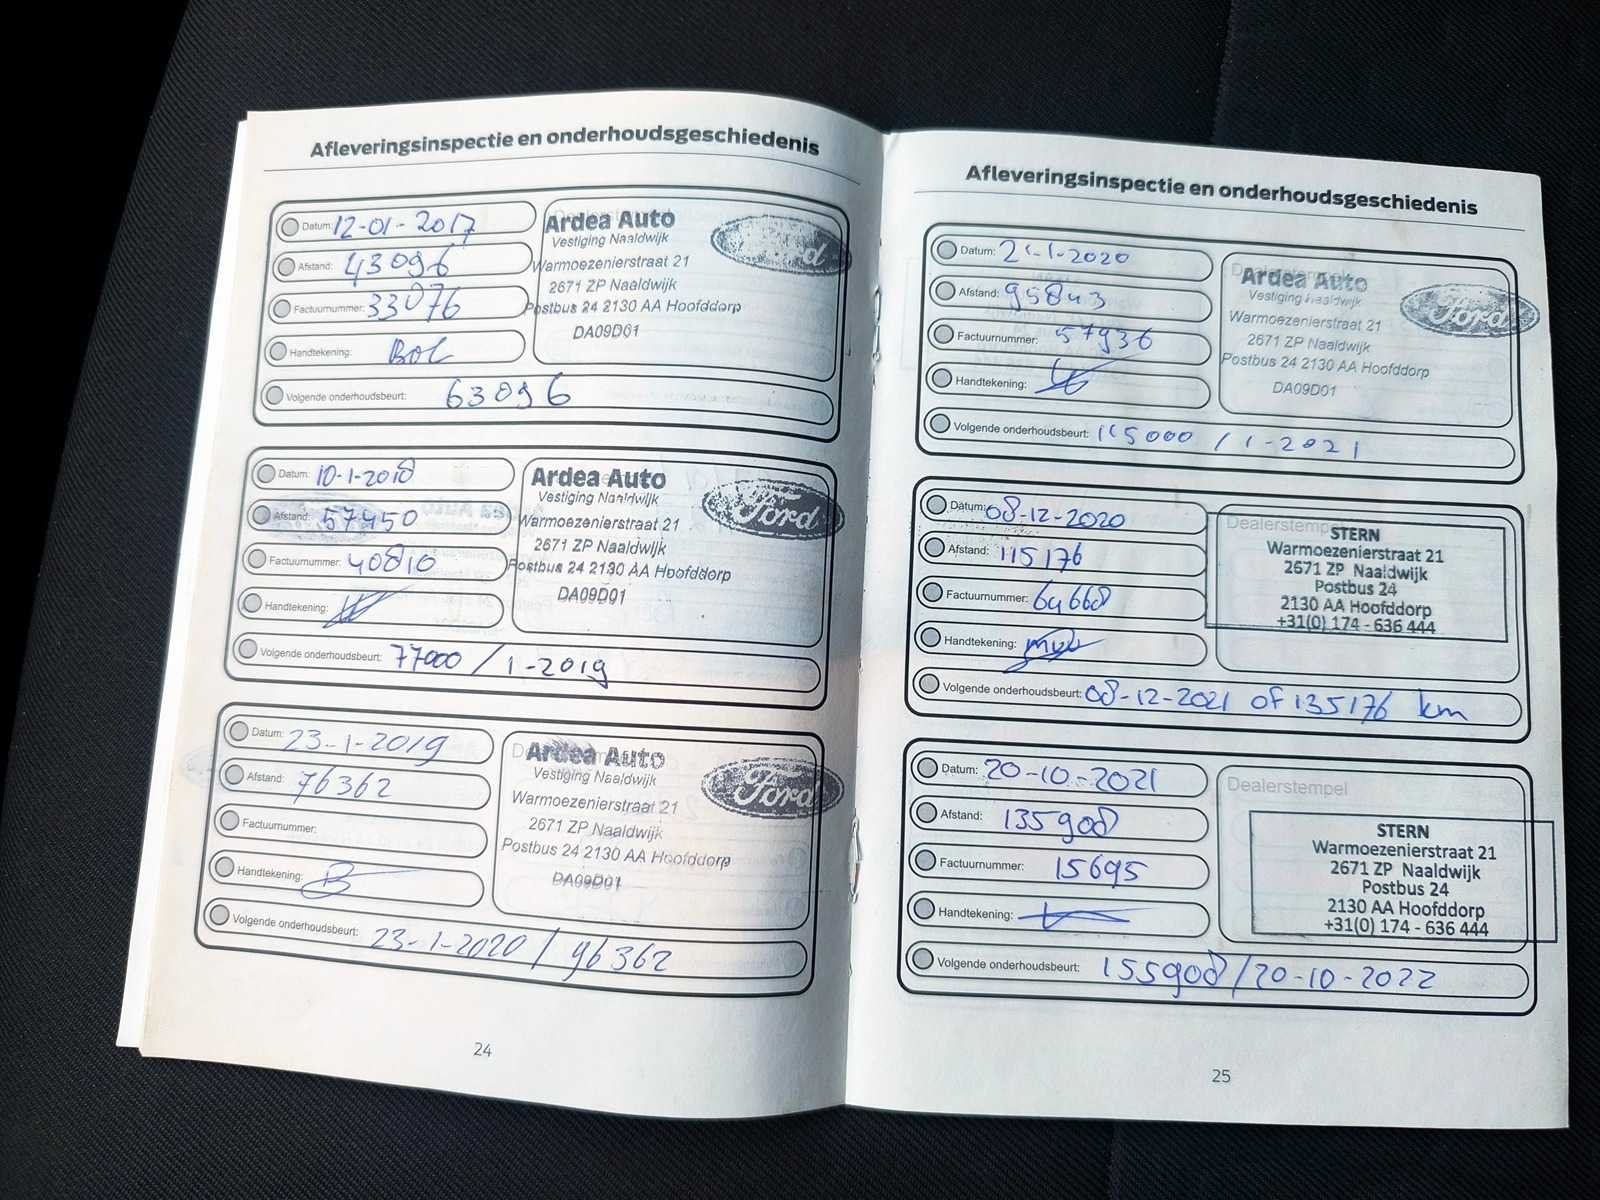 Afleveringsinspectie en onderhoudsgeschiedenis
Datum: 12-01-2017
Afstand: 43096
Factuurnummer: 33076
Handtekening:
Volgende onderhoudsbeurt: 63096
Ardea Auto
Vestiging Naaldwijk
Warmoezenierstraat 21
2671 ZP Naaldwijk
Postbus 24 2130 AA Hoofddorp
DA09D01
Datum: 10-1-2018
Afstand: 57450
Factuurnummer: 40810
Handtekening:
Volgende onderhoudsbeurt: 77000 / 1-2019
Ardea Auto
Vestiging Naaldwijk
Warmoezenierstraat 21
2671 ZP Naaldwijk
Postbus 24 2130 AA Hoofddorp
DA09D01
Ford
Datum: 23-1-2019
Afstand: 76362
Factuurnummer:
Handtekening:
Volgende onderhoudsbeurt: 23-1-2020 / 96362
Ardea Auto
Vestiging Naaldwijk
Warmoezenierstraat 21
2671 ZP Naaldwijk
Postbus 24 2130 AA Hoofddorp
DA09D01
Ford
24
Afleveringsinspectie en onderhoudsgeschiedenis
Datum:
Afstand: 95843
Factuurnummer: 57936
Handtekening:
Volgende onderhoudsbeurt: 115000 / 1-2021
Dealerstempel
Ardea Auto
Vestiging Naaldwijk
Warmoezenierstraat 21
2671 ZP Naaldwijk
Postbus 24 2130 AA Hoofddorp
DA09D01
Ford
Datum: 08-12-2020
Afstand: 115176
Factuurnummer: 64668
Handtekening:
Volgende onderhoudsbeurt: 08-12-2021 of 135176 km
Dealerstempel
STERN
Warmoezenierstraat 21
2671 ZP Naaldwijk
Postbus 24
2130 AA Hoofddorp
+31(0) 174 - 636 444
Datum: 20-10-2021
Afstand: 135908
Factuurnummer: 15695
Handtekening:
Volgende onderhoudsbeurt: 155908/20-10-2022
Dealerstempel
STERN
Warmoezenierstraat 21
2671 ZP Naaldwijk
Postbus 24
2130 AA Hoofddorp
+31(0) 174 - 636 444
25